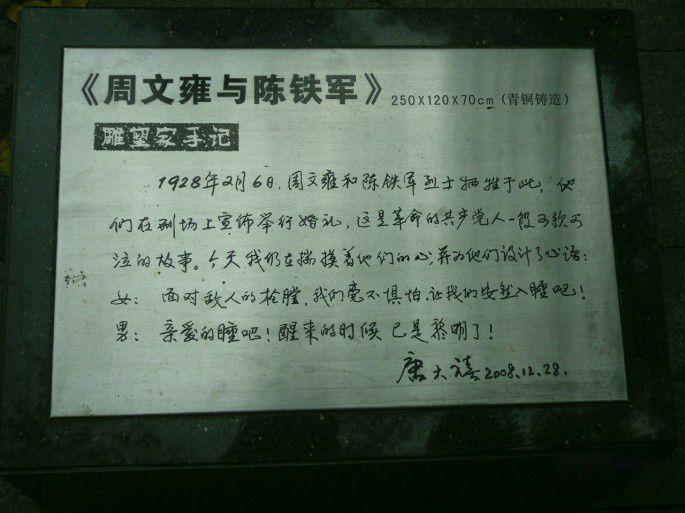 《周文雍与陈铁军》 250X120X70cm (青铜铸造)
雕塑家手记
1928年2月6日，周文雍和陈铁军烈士牺牲于此，他
们在刑场上宣布举行婚礼，这是革命的共产党人一段可歌可
泣的故事。今天我仍在揣摸着他们的心，并为他们设计了心语：
女：面对敌人的枪膛，我们毫不惧怕，让我们安然入睡吧！
男：亲爱的睡吧！醒来的时候已是黎明了！
唐大禧 2008.12.28.